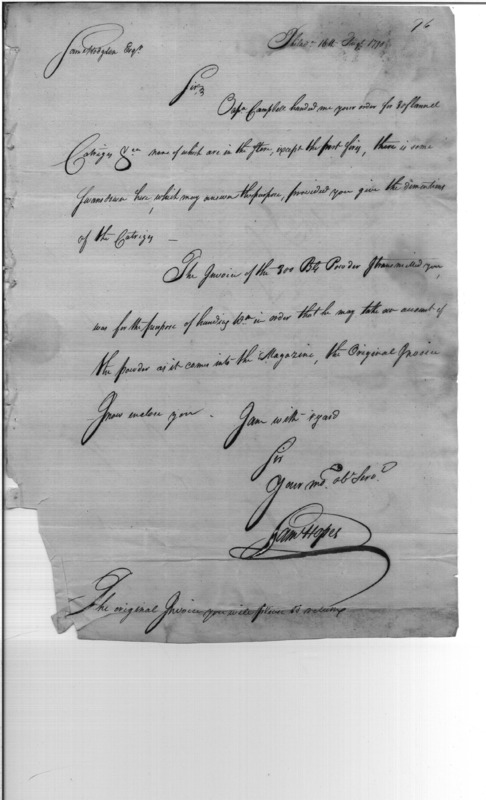 96
Sam Hodgdon Esqr.
16th Augt. 179
Sir,
Capn. Campbell handed me your order for flannel
Catriges &ca none of which are in the Store, except the port fire, there is some
here, which may answer the purpose, provided you give the dimentions
of the Catriges —
The Invoice of the 200 Powder I transmitted you,
was for the purpose of handing in order that he may take an account of
the powder as it comes into the Magazine, the Original Invoice
I now enclose you. I am with regard
Sir
Your mo. obt. Servt.
Saml Hopes
The original Invoice you will please to return